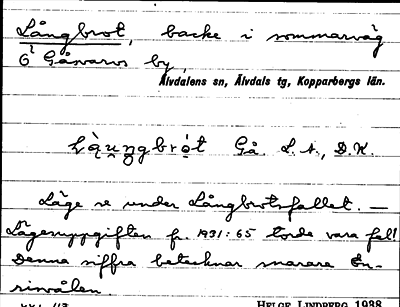 Långbrot, backe i sommarväg
t. Gåsvarvs by,
Älvdalens sn, Älvdals tg, Kopparbergs län.
Làu̯ŋgbrọ́t Gå. L.A., D.K.
Läge se under Långbrotsfallet. —
Lägesuppgiften fr. 1931:65 torde vara fel!
Denna siffra betecknar snarare En-
risvålen.
HELGE LINDBERG 1938